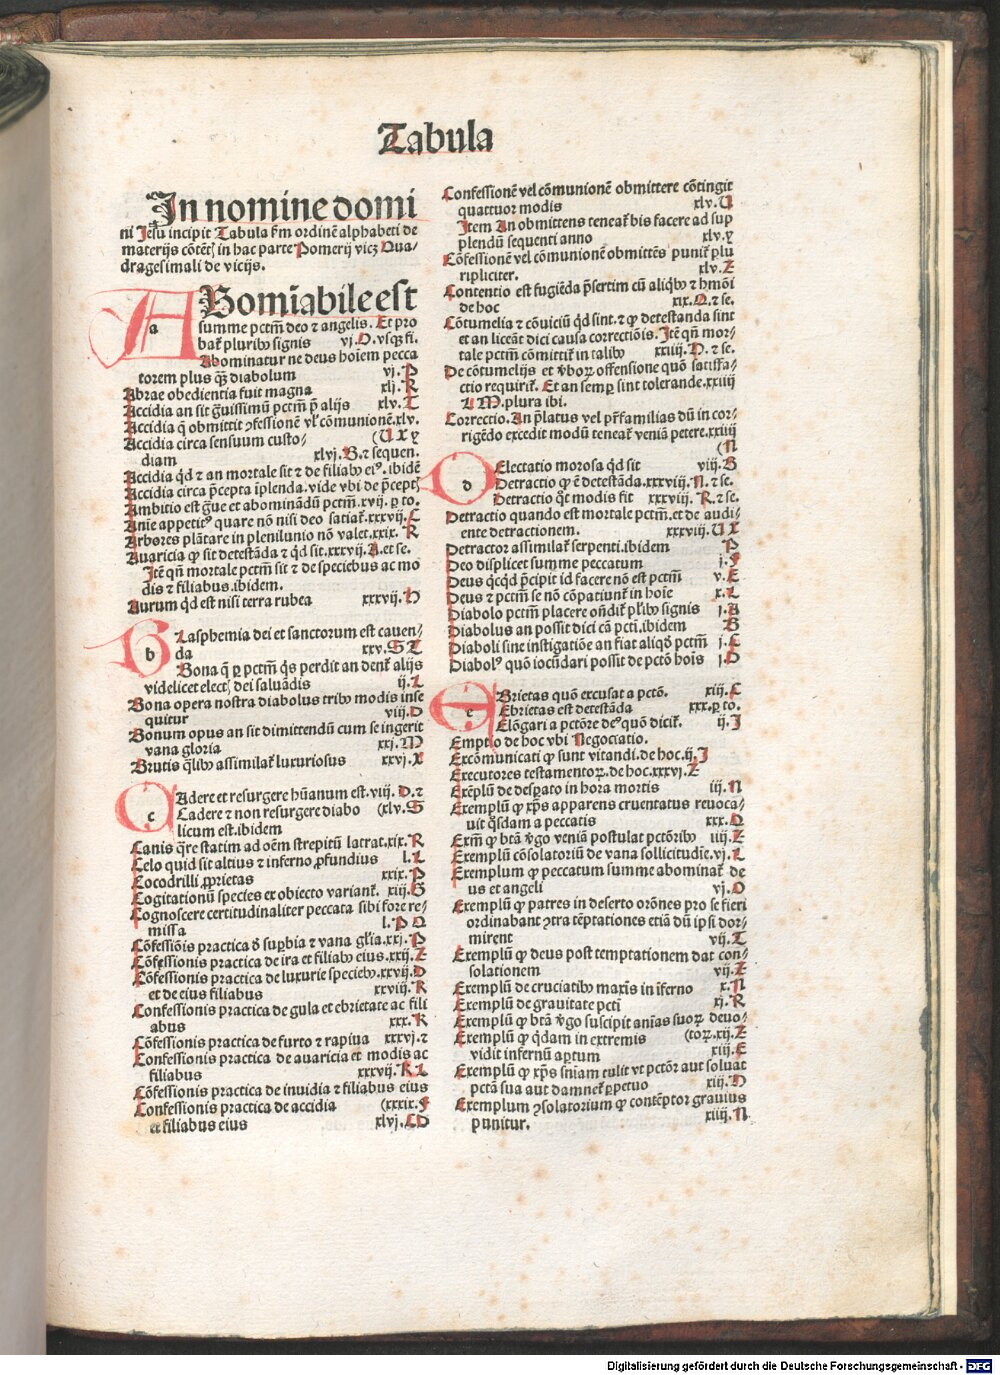 Tabula
In nomine domi
ni Jesu incipit Tabula ẜm ordinē alphabeti de
materijs cōtētꝭ in hac parte Pomerij vicꝫ Qua-
dragesimali de vicijs.
ABomīabile est
summe pctm̄ deo ⁊ angelis. Et pro
bat᷑ pluribꝰ signis vj.O.vsqꝫ fi.
Abominatur ne deus hoīem pecca
torem plus qꝫ diabolum vj.P
Abrae obedientia fuit magna xlj.R
Accidia an sit g̃uissimū pctm̄ p̄ alijs xlv.T
Accidia q̄ obmittit ꝯfessionē vl̕ cōmunionē.xlv.
Accidia circa sensuum custo- (U X y
diam xlvj.B.⁊ sequen.
Accidia qd̄ ⁊ an mortale sit ⁊ de filiabꝰ eiꝰ.ibidē
Accidia circa p̄cepta īplenda.vide vbi de p̄ceptꝭ
Ambitio est g̃ue et abominādū pctm̄.xvij.ꝑ to.
Anīe appetitꝰ quare nō nisi deo satiat᷑.xxxvij.E
Arbores plātare in plenilunio nō valet.xxix.R
Avaricia ꝙ sit detestāda ⁊ qd̄ sit.xxxvij.A.et se.
Itē qn̄ mortale pctm̄ sit ⁊ de speciebus ac mo
dis ⁊ filiabus.ibidem.
Aurum qd̄ est nisi terra rubea xxxvij.H
BLasphemia dei et sanctorum est cauen-
da xxv.S T
Bona q̄ ꝑ pctm̄ q̇s perdit an dent᷑ alijs
videlicet electꝭ dei saluādis ij.L
Bona opera nostra diabolus tribꝰ modis inse
quitur viij.D
Bonum opus an sit dimittendū cum se ingerit
vana gloria xxj.M
Brutis q̄libꝰ assimilat᷑ luxuriosus xxvj.X
CAdere et resurgere hūanum est.viij.D.⁊
Cadere ⁊ non resurgere diabo (xlv.S
licum est.ibidem
Canis q̄re statim ad oēm strepitū latrat.xix.R
Celo quid sit altius ⁊ inferno ꝓfundius l.L
Cocodrilli ꝓprietas xxix.P
Cogitationū species ex obiecto variant᷑. xiij.G
Cognoscere certitudinaliter peccata sibi fore re-
missa l.P Q
Cōfessiōis practica d̄ suꝑbia ⁊ vana gl̕ia.xxj.P
Cōfessionis practica de ira et filiabꝰ eius.xxij.Z
Cōfessionis practica de luxurie speciebꝰ.xxvij.D
et de eius filiabus xxviij.R
Confessionis practica de gula et ebrietate ac fili
abus xxx.K
Cōfessionis practica de furto ⁊ rapina xxxvj.⁊
Confessionis practica de auaricia et modis ac
filiabus xxxvij.K L
Cōfessionis practica de inuidia ⁊ filiabus eius
Confessionis practica de accidia (xxxix.F
et filiabus eius xlvj.C D
Confessionē vel cōmunionē obmittere cōtingit
quattuor modis xlv.U
Item An obmittens teneat᷑ bis facere ad sup
plendū sequenti anno xlv.y
Cōfessionē vel cōmunionē obmittēs punit᷑ plu
ripliciter. xlv.Z
Contentio est fugiēda p̄sertim cū aliqbꝰ ⁊ hm̄oi
de hoc xix.Q.⁊ se.
Cōtumelia ⁊ cōuiciū qd̄ sint.⁊ ꝙ detestanda sint
et an liceāt dici causa correctiōis. Itē qn̄ mor-
tale pctm̄ cōmittit᷑ in talibꝰ xxiiij.D.⁊ se.
De cōtumelijs et v̄boꝝ offensione quō satisfa-
ctio requirit᷑. Et an semꝑ sint tolerande.xxiiij
L M.plura ibi.
Correctio. An p̄latus vel pr̄familias dū in cor-
rigēdo excedit modū teneat᷑ veniā petere.xxiiij
(N
DElectatio morosa qd̄ sit viij.B
Detractio ꝙ ē detestāda.xxxviij.N.⁊ se.
Detractio q̇t modis fit xxxviij.R.⁊ se.
Detractio quando est mortale pctm̄.et de audi-
ente detractionem. xxxviij.U X
Detractor assimilat᷑ serpenti.ibidem P
Deo displicet summe peccatum j.F
Deus qcqd p̄cipit id facere nō est pctm̄ v.E
Deus ⁊ pctm̄ se nō cōpatiunt᷑ in hoīe x.L
Diabolo pctm̄ placere oñdit᷑ pl̕ibꝰ signis j.A
Diabolus an possit dici cā pcti.ibidem B
Diaboli sine instigatiōe an fiat aliqd̄ pctm̄ j.C
Diabolꝰ quō iocūdari possit de pctō hoīs j.D
EBrietas quō excusat a pctō. xiij.C
Ebrietas est detestāda xxx.ꝑ to.
Elōgari a pctōre deꝰ quō dicit᷑. ij.I
Emptio de hoc vbi Negociatio.
Excōmunicati ꝙ sunt vitandi.de hoc.ij.I
Executores testamentoꝝ.de hoc.xxxvj.Z
Exēplū de desꝑato in hora mortis iij.N
Exemplū ꝙ xp̄s apparens cruentatus reuoca-
uit q̄sdam a peccatis xxx.Q
Exm̄ ꝙ btā v̄go veniā postulat pctōribꝰ iiij.Z
Exemplū cōsolatoriū de vana sollicitudīe.vj.L
Exemplum ꝙ peccatum summe abominat᷑ de
us et angeli vj.O
Exemplū ꝙ patres in deserto orōnes pro se fieri
ordinabant ꝯtra tēptationes etiā dū ipsi dor-
mirent vij.T
Exemplū ꝙ deus post temptationem dat con-
solationem vij.Z
Exemplū de cruciatibꝰ maxīs in īferno x.N
Exemplū de grauitate pcti xj.R
Exemplū ꝙ btā v̄go suscipit anīas suoꝝ deuo-
Exemplū ꝙ q̇dam in extremis (toꝝ.xij.Z
vidit infernū aꝑtum xiij.E
Exemplū ꝙ xp̄s sn̄iam tulit vt pctōr aut soluat
pctā sua aut damnet᷑ ꝑpetuo xiij.D
Exemplum ꝯsolatorium ꝙ contēptor grauius
punitur. xiiij.N
a
b
c
d
e
Digitalisierung gefördert durch die Deutsche Forschungsgemeinschaft - DFG